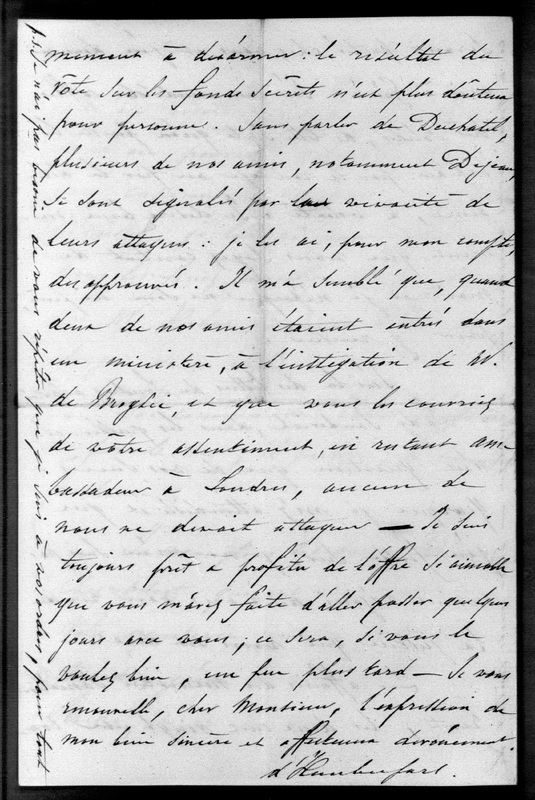 moment à désarmer : le résultat du
vote sur les fonds secrets n'est plus douteux
pour personne. Sans parler de Duchatel,
plusieurs de nos amis, notamment Dejean,
se sont signalés par la vivacité de
leurs attaques : je les ai, pour mon compte,
desapprouvés. Il m'a semblé que, quand
deux de nos amis étaient entrés dans
un ministère, à l'instigation de M.
de Broglie, et que vous les couvriez
de vôtre assentiment, en restant am-
bassadeur à Londres, aucun de
nous ne devait attaquer — Je suis
toujours prêt a profiter de l'offre si aimable
que vous m'avez faite d'aller passer quelques
jours avec vous ; ce sera, si vous le
voulez bien, un peu plus tard — Je vous
renouvelle, cher Monsieur, l'expression de
mon bien sincère et affectueux dévouement.
d'Haubersart.
p.s. Je n'ai pas besoin de vous répéter que je suis à vos ordres, pour tout